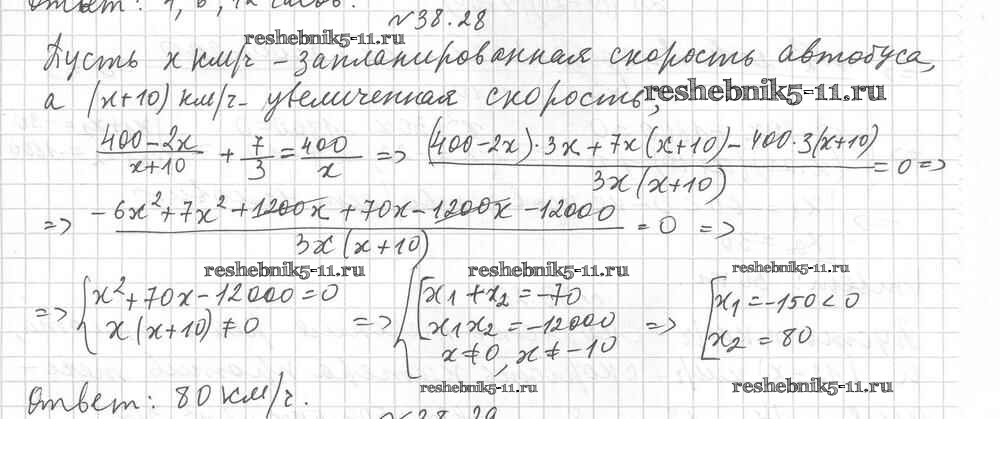 Ответ: 1,
часов.
№38.28
reshebnik5-11.ru
Пусть x км/ч - запланированная скорость автобуса,
а (x+10) км/ч - увеличенная скорость,
reshebnik5-11.ru
(400-2x)/(x+10) + 7/3 = 400/x => ((400-2x)·3x + 7x(x+10) - 400·3(x+10))/(3x(x+10)) = 0 =>
=> (-6x² + 7x² + 1200x + 70x - 1200x - 12000)/(3x(x+10)) = 0 =>
reshebnik5-11.ru reshebnik5-11.ru reshebnik5-11.ru
=> { x² + 70x - 12000 = 0 => { [ x₁ + x₂ = -70 => [ x₁ = -150 < 0
x(x+10) ≠ 0 x₁x₂ = -12000 x₂ = 80
x ≠ 0, x ≠ -10
reshebnik5-11.ru reshebnik5-11.ru
Ответ: 80 км/ч.
№38.29